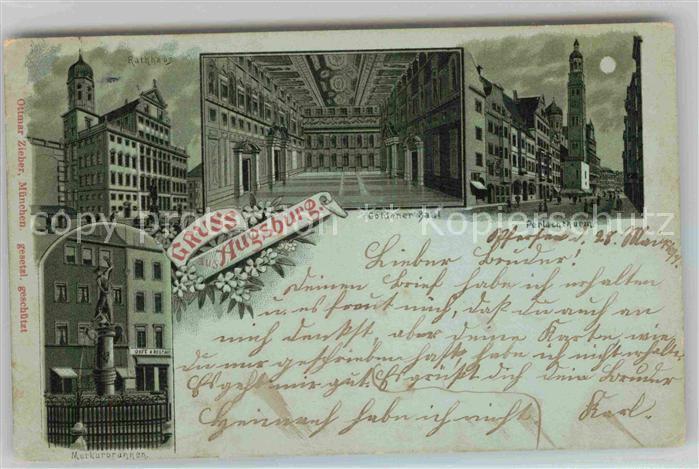 Rathhaus
Goldener Saal
Perlachthurm.
GRUSS
aus
Augsburg.
Ottmar Zieher, München. gesetzl. geschützt
CAFE & RESTAU
Merkurbrunnen.
d. 28. Mai
Lieber Bruder!
Deinen Brief habe ich erhalten
u. es freut mich, daß du auch an
mich denkst, aber deine Karte, wie
du mir geschrieben hast habe ich nicht erhalten
Es geht mir gut. Es grüßt dich dein Bruder
Heimweh habe ich nicht. Karl.
copyright by oldthing.de